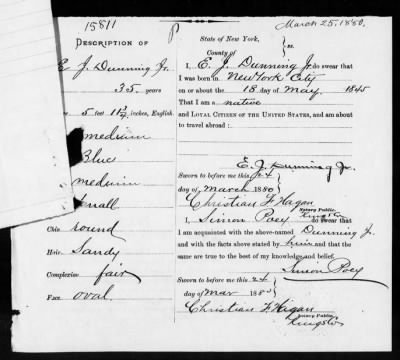 15811
March 25, 1880.
DESCRIPTION OF
E J Dunning Jr.
35 years
5 feet 11 1/2 inches, English
medium
Blue
medium
small
Chin round
Hair Sandy
Complexion fair
Face oval
State of New York,
County of } ss.
I, E. J. Dunning Jr. do swear that
I was born in New York City
on or about the 18 day of May, 1845
That I am a native
and LOYAL CITIZEN OF THE UNITED STATES, and am about
to travel abroad :.
E. J. Dunning Jr.
Sworn to before me this 24
day of March 1880
Christian F Hagan
Notary Public.
Kings Co
I, Simon Poey do swear that
I am acquainted with the above-named Dunning Jr.
and with the facts above stated by him and that the
same are true to the best of my knowledge and belief.
Simon Poey
Sworn to before me this 24
day of Mar 1880
Christian F Hagan
Notary Public.
Kings Co